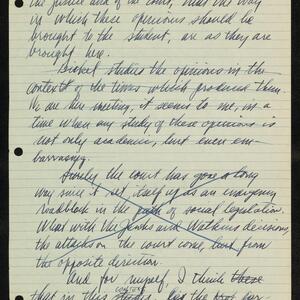 the justice and of the court, that the way
in which these opinions should be
brought to the student, are as they are
brought here.
Bickel studies the opinions in the
context of the times which produced them.
We are thus meeting, it seems to me, in a
time when any study of these opinions is
not only academic, but even em-
barrassing.
Surely the court has gone a long
way since it set itself up as an emergency
roadblock in the path of social legislation.
What with the Jencks and Watkins decisions,
the attacks on the court come, but from
the opposite direction.
And for myself, I think these
that in this